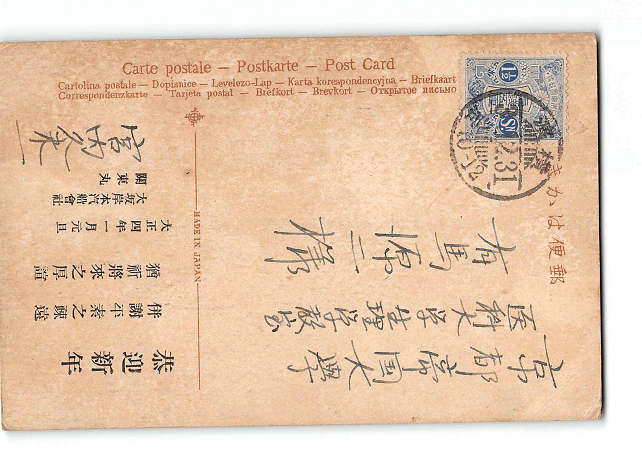 Carte postale — Postkarte — Post Card
Cartolina postale — Dopisnice — Levelezo-Lap — Karta korespondencyjna — Briefkaart
Correspondenzkarte — Tarjeta postal — Brefkort — Brevkort — Открытое письмо
郵便はかき
1½
2.31
MADE IN JAPAN
京都帝国大学
医科大学生理学教室
有馬
恭迎新年
併謝平素之疎遠
猶祈将来之厚誼
大正四年一月元旦
大坂岸本汽船會社
關東丸
宮内